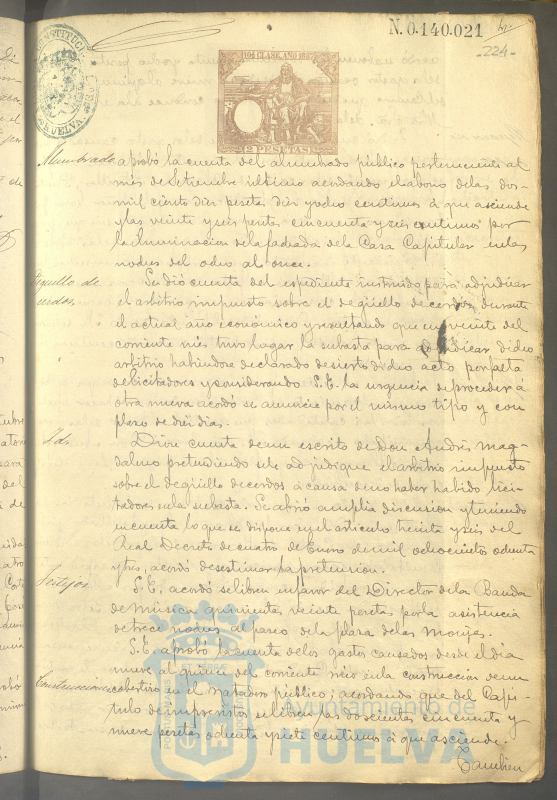 N. 0.140.021
224
10ª CLASE. AÑO 1887
2 PESETAS
HUELVA
Alumbrado
aprobó la cuenta del alumbrado público perteneciente al
mes de Setiembre último acordando el abono de las dos
mil ciento diez pesetas diez y ocho centimos á que asciende
y las veinte y seis pesetas cincuenta y seis centimos por
la iluminacion de la fachada de la Casa Capitular en las
noches del ocho al once.
Degüello de
cerdos.
Se dió cuenta del espediente instruido para adjudicar
el arbitrio impuesto sobre el degüello de cerdos durante
el actual año económico y resultando que en veinte del
corriente mes tuvo lugar la subasta para adjudicar dicho
arbitrio habiendose declarado desierto dicho acto por falta
de licitadores y considerando S.E. la urgencia de proceder á
otra nueva acordó se anuncie por el mismo tipo y con
plazo de diez dias.
Id.
Dióse cuenta de un escrito de Don Andrés Mag-
daleno pretendiendo se le adjudique el arbitrio impuesto
sobre el degüello de cerdos á causa de no haber habido lici-
tadores en la subasta. Se abrió amplia discusion y teniendo
en cuenta lo que se dispone en el articulo treinta y seis del
Real Decreto de cuatro de Enero de mil ochocientos ochenta
y tres, acordó desestimar la pretension.
Festejos
S.E. acordó se libren en favor del Director de la Banda
de música quinientas veinte pesetas por la asistencia
de trece noches al paseo de la plaza de las Monjas.
S.E. aprobó la cuenta de los gastos causados desde el dia
nueve al quince del corriente mes en la construccion de un
Construcciones
cobertizo en el Matadero público; acordando que del Capí-
tulo de imprevistos se libren las doscientas cincuenta y
nueve pesetas ochenta y siete centimos á que asciende.
Tambien
Ayuntamiento de
HUELVA